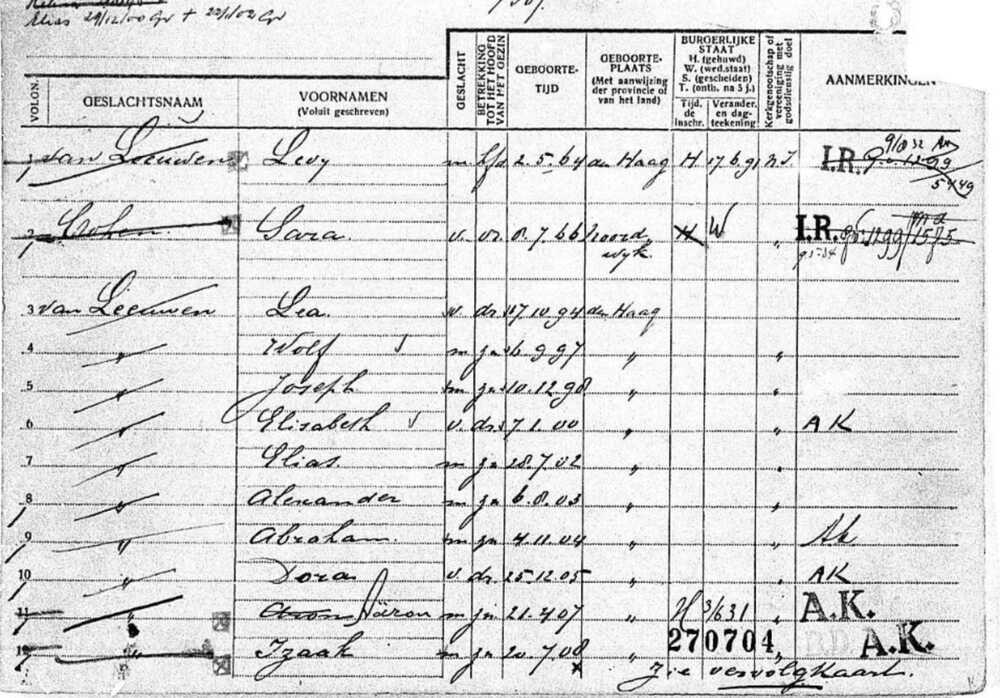 Elias 29/12/00 Gv + 22/1/02 Gv
VOLGN.
GESLACHTSNAAM
VOORNAMEN
(Voluit geschreven)
GESLACHT
BETREKKING TOT HET HOOFD VAN HET GEZIN
GEBOORTE-
TIJD
GEBOORTE-
PLAATS
(Met aanwijzing
der provincie of
van het land)
BURGERLIJKE
STAAT
H. (gehuwd)
W. (wed.staat)
S. (gescheiden)
T. (ontb. na 5 j.)
Tijd. de inschr.
Verander. en dag-teekening
Kerkgenootschap of vereeniging met godsdienstig doel
AANMERKINGEN
1 van Leeuwen Levy m hfd 2.5.64 den Haag H 17.6.91 N.I. I.R. 9/8 32
5449
2 Cohen Sara. v. vr. 8.7.66 Noord H W " I.R.
wijk.
3 van Leeuwen Lea. v. dr. 17.10.94 den Haag
4 " Wolf m zn 16.9.97 " "
5 " Joseph m zn 10.12.98 " "
6 " Elisabeth v. dr. 7.1.00 " " AK
7 " Elias. m zn 28.7.02 " "
8 " Alexander m zn 6.8.03 " "
9 " Abraham. m zn 4.11.04 " " Ak
10 " Dora v. dr. 25.12.05 " " AK
11 " Aron Säron m zn 21.4.07 " H 3/6 31 " A.K.
270704
12 " Izaak m zn 20.7.08 " A.K.
Zie vervolgkaart.